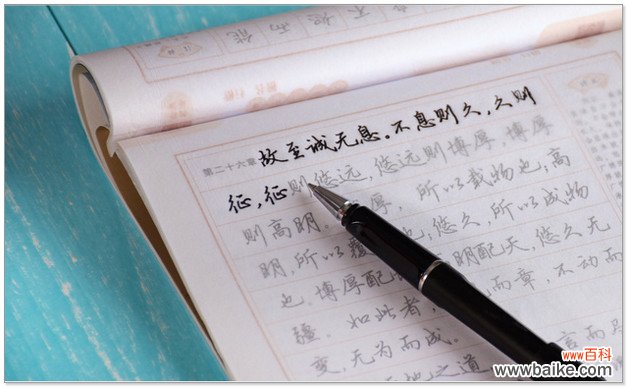 而能
第二十六章 故至诚无息。不息则久,久则
征,征则悠远,悠远则博厚,博厚
则高明。厚,所以载物也;高
明,所以覆也;悠久,所以成物
也。博厚配明配天,悠久无
疆。如此者,而章,不动而
变,无为而成。
地之道 言而
www百科
www.baike.com